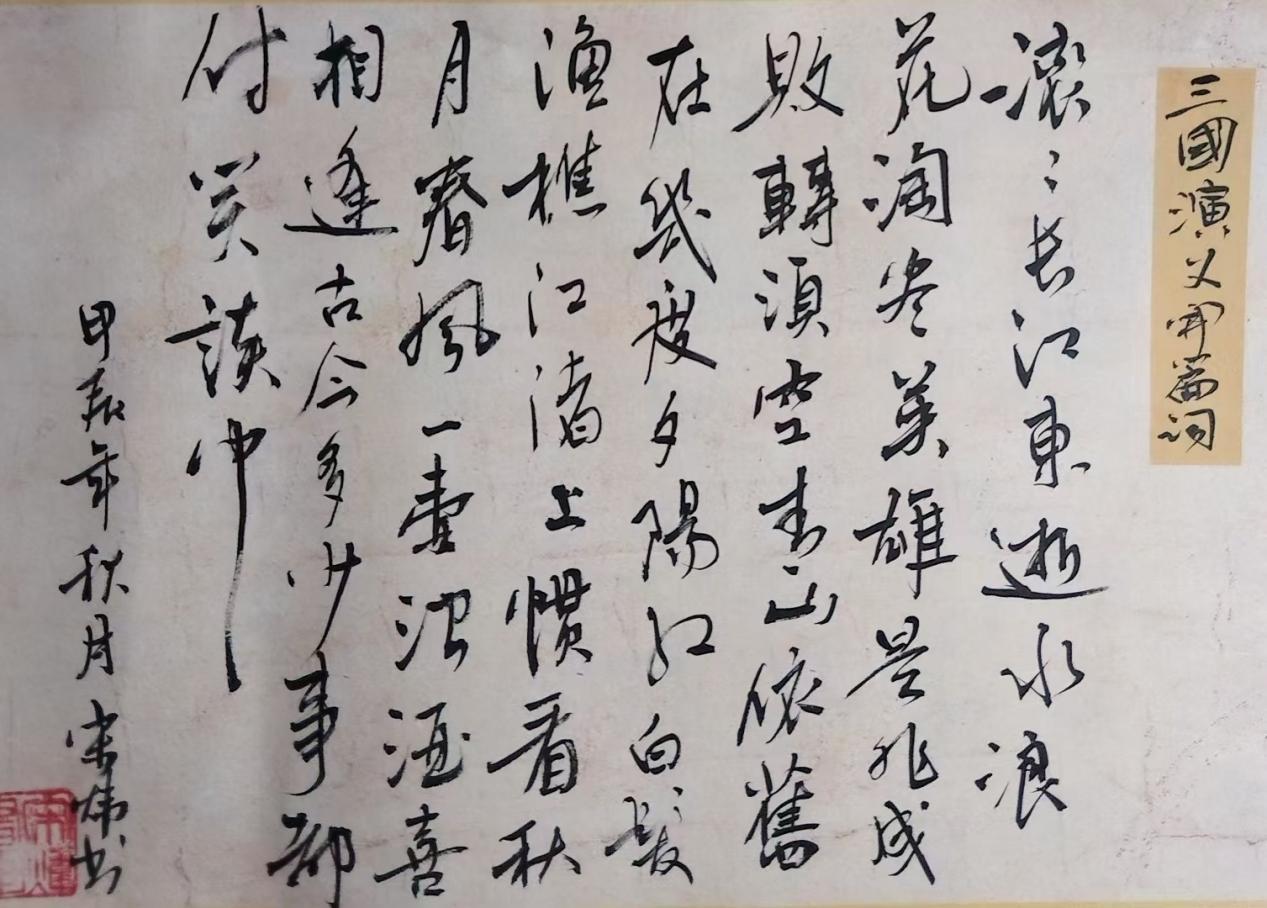 三國演义開篇词
滚〻长江東逝水浪
花淘尽英雄是非成
敗轉頭空青山依舊
在幾度夕陽红白髮
渔樵江渚上慣看秋
月春風一壺濁酒喜
相逢古今多少事都
付笑談中
甲辰年秋月宋炜书